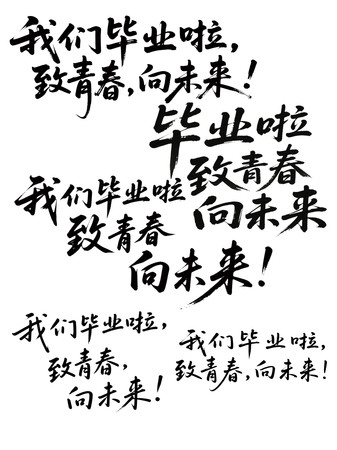 我们毕业啦，
致青春，向未来！
毕业啦
致青春
向未来
我们毕业啦
致青春
向未来！
我们毕业啦，
致青春，
向未来！
我们毕业啦，
致青春，向未来！